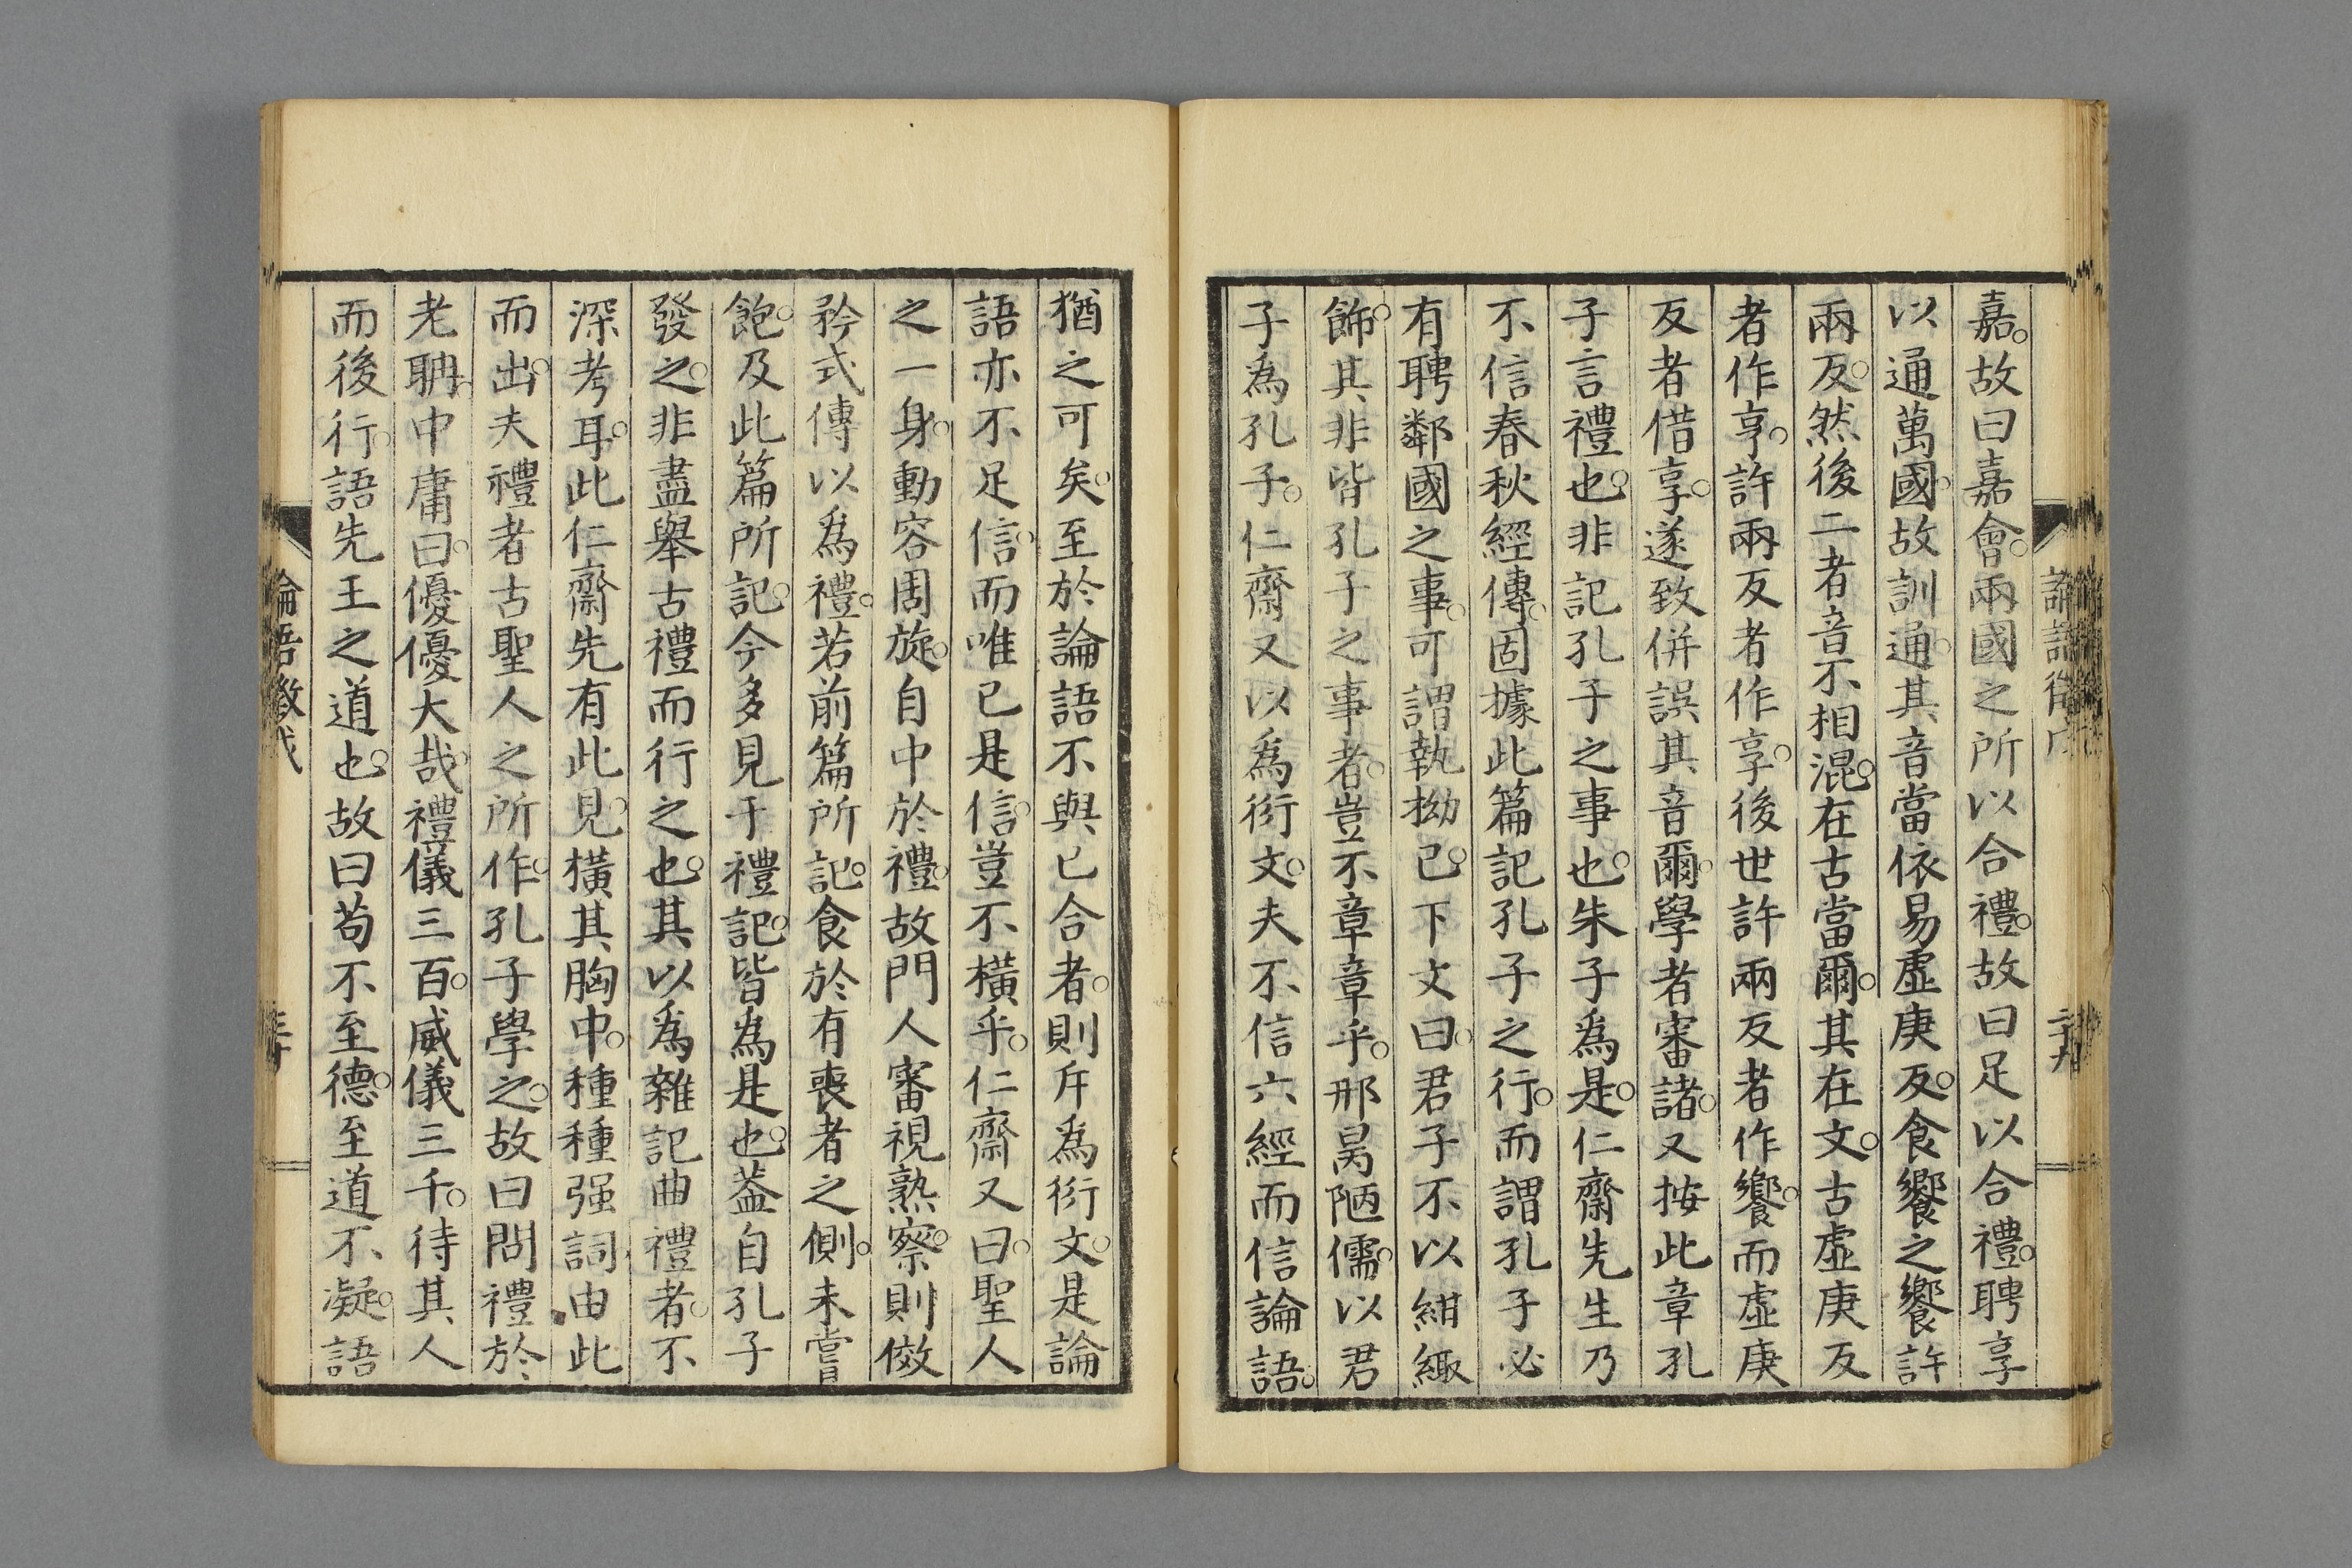 嘉。故曰嘉會。兩國之所以合禮。故曰足以合禮。聘享
以通萬國。故訓通。其音當依易虛庚反。食饗之饗許
兩反。然後二者音不相混。在古當爾。其在文。古虛庚反
者作亨。許兩反者作享。後世許兩反者作饗。而虛庚
反者借享。遂致併誤其音爾。學者審諸。又按此章孔
子言禮也。非記孔子之事也。朱子爲是。仁齋先生乃
不信春秋經傳。固據此篇記孔子之行。而謂孔子必
有聘鄰國之事。可謂執拗已。下文曰。君子不以紺緅
飾。其非皆孔子之事者。豈不章章乎。邢昺陋儒。以君
子爲孔子。仁齋又以爲衍文。夫不信六經而信論語。
猶之可矣。至於論語不與己合者。則斥爲衍文。是論
語亦不足信。而唯己是信。豈不橫乎。仁齋又曰。聖人
之一身。動容周旋。自中於禮。故門人審視熟察。則傚
矜式傳以爲禮。若前篇所記。食於有喪者之側。未嘗
飽。及此篇所記。今多見于禮記。皆爲是也。葢自孔子
發之。非盡舉古禮而行之也。其以爲雜記曲禮者。不
深考耳。此仁齋先有此見。橫其胸中。種種强詞由此
而出。夫禮者古聖人之所作。孔子學之。故曰問禮於
老聃。中庸曰。優優大哉。禮儀三百。威儀三千。待其人
而後行。語先王之道也。故曰苟不至德。至道不凝。語